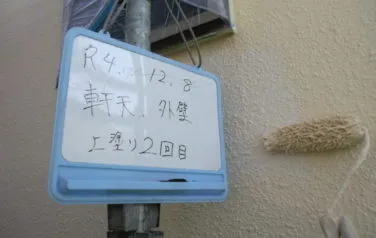 R4.12.8
軒天、外壁
上塗り2回目